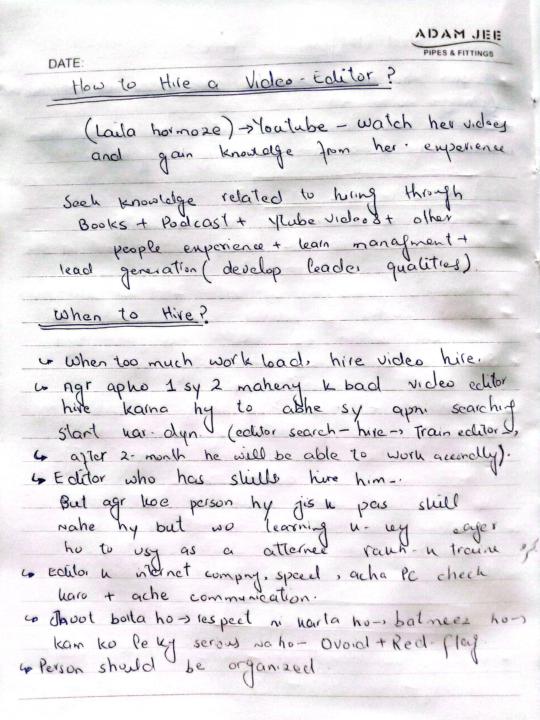 ADAM JEE
PIPES & FITTINGS
DATE:
How to Hire a Video-Editor?
(Laila hormoze) → Youtube - watch her videos
and gain knowldge from her. experience
Seek knowledge related to hiring through
Books + Podcast + Ytube videos + other
people experience + learn managment +
lead generation ( develop leader qualities)
When to Hire?
↳ When too much work load, hire video hire.
↳ Agr apko 1 sy 2 maheny k bad video editor
hire karna hy to abhe sy apni searching
start kar dyn (editor search - hire → Train editor,
↳ after 2-month he will be able to work accordly).
↳ Editor who has skills hire him-.
But agr koe person hy jis k pas skill
nahe hy but wo learning k ey eager
ho to usy as a atternee rakh k
↳ Editor k internet compny, speed, acha PC check
karo + ache communication.
↳ Jhoot bolta ho → respect ni karta ho → batmeez ho →
kam ko le ky serous na ho - Ovoid + Red flag
↳ Person should be organized